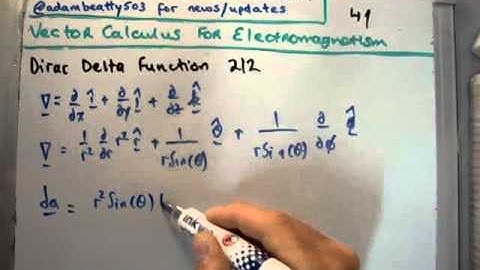 @adambeatty503 for news/updates
49
Vector Calculus For Electromagnetism
Dirac Delta Function 2/2
∇ = ∂/∂x î + ∂/∂y ĵ + ∂/∂z k̂
∇ = 1/r² ∂/∂r r² r̂ + 1/(r Sin(θ)) θ̂ + 1/(r Sin(θ)) ∂/∂ϕ ϕ̂
da = r² Sin(θ) (
ink